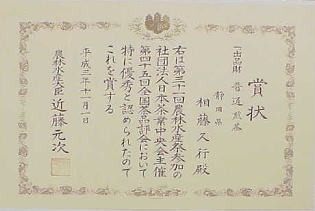 賞状
一、出品財 普通煎茶
静岡県
相藤又行殿
右は第三十一回農林水産祭参加の
社団法人日本茶業中央会主催
第四十五回全国茶品評会において
特に優秀と認められたので
これを賞する
平成三年十一月一日
農林水産大臣 近藤元次